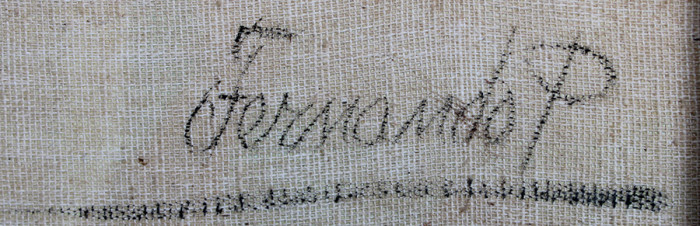 Fernando P